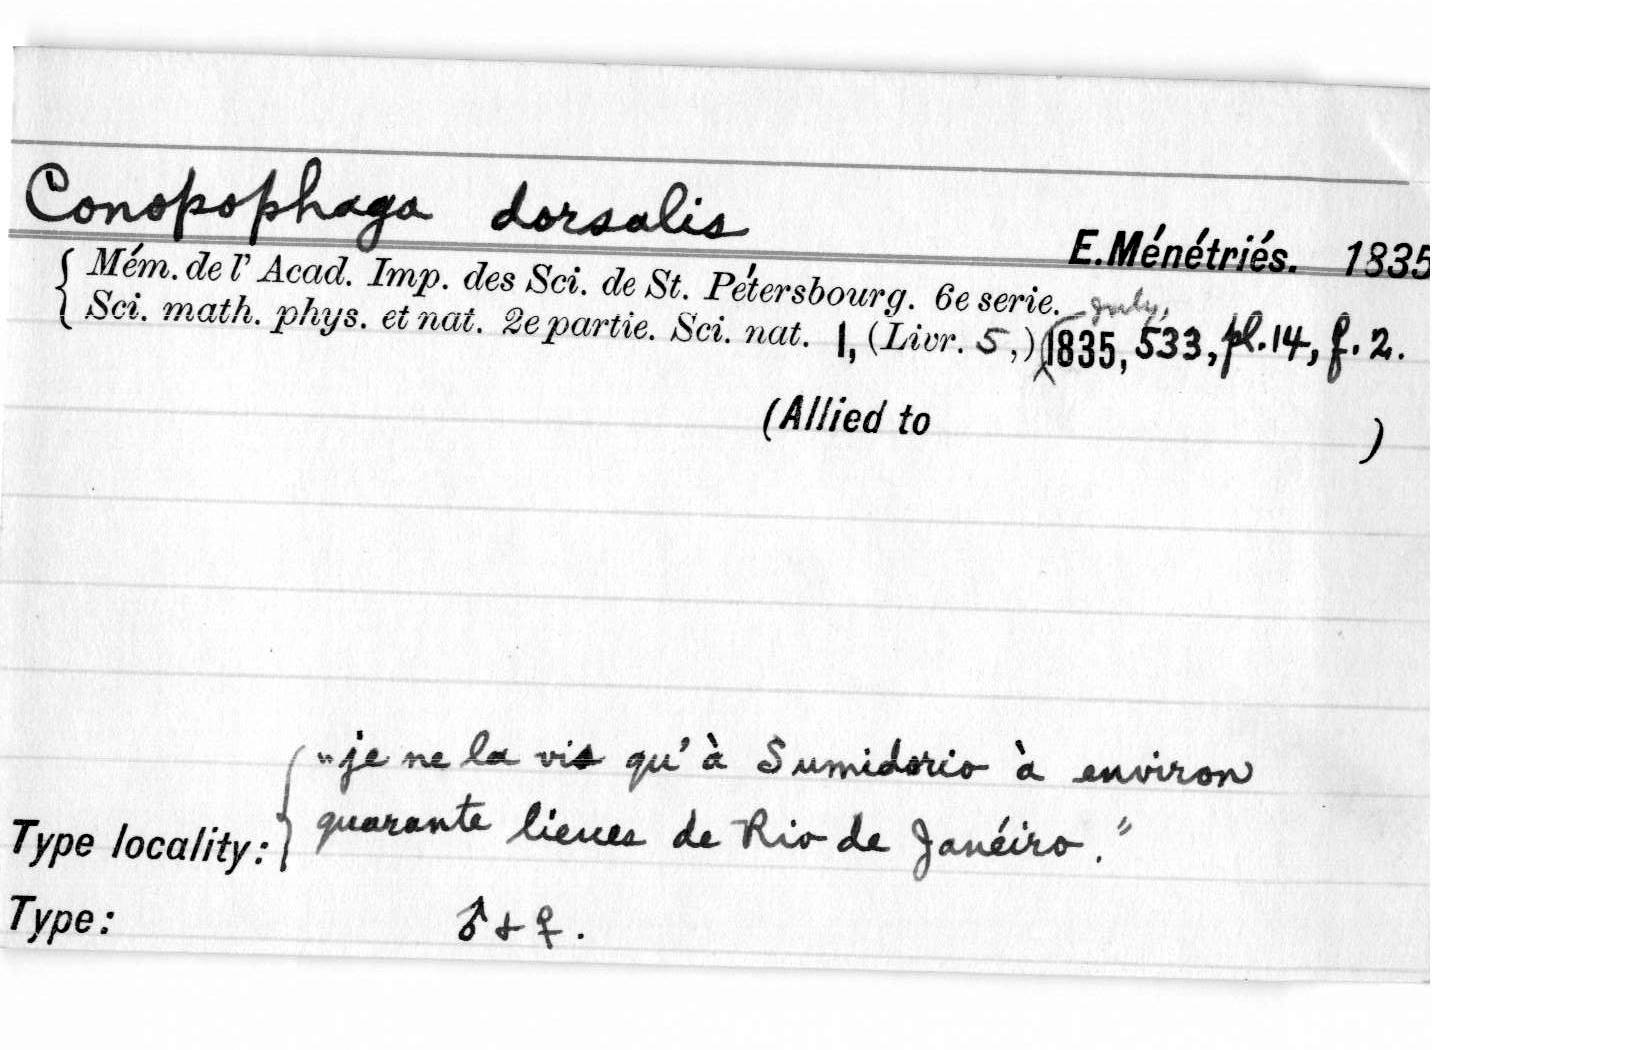 Conopophaga dorsalis
E. Ménétriés. 1835
Mém. de l' Acad. Imp. des Sci. de St. Pétersbourg. 6e serie.
July,
Sci. math. phys. et nat. 2e partie. Sci. nat. 1, (Livr. 5,) 1835, 533, pl. 14, f. 2.
(Allied to )
"je ne la vis qu'à Sumidorio à environ
quarante lieues de Rio de Janéiro."
Type locality:
Type: ♂ + ♀.